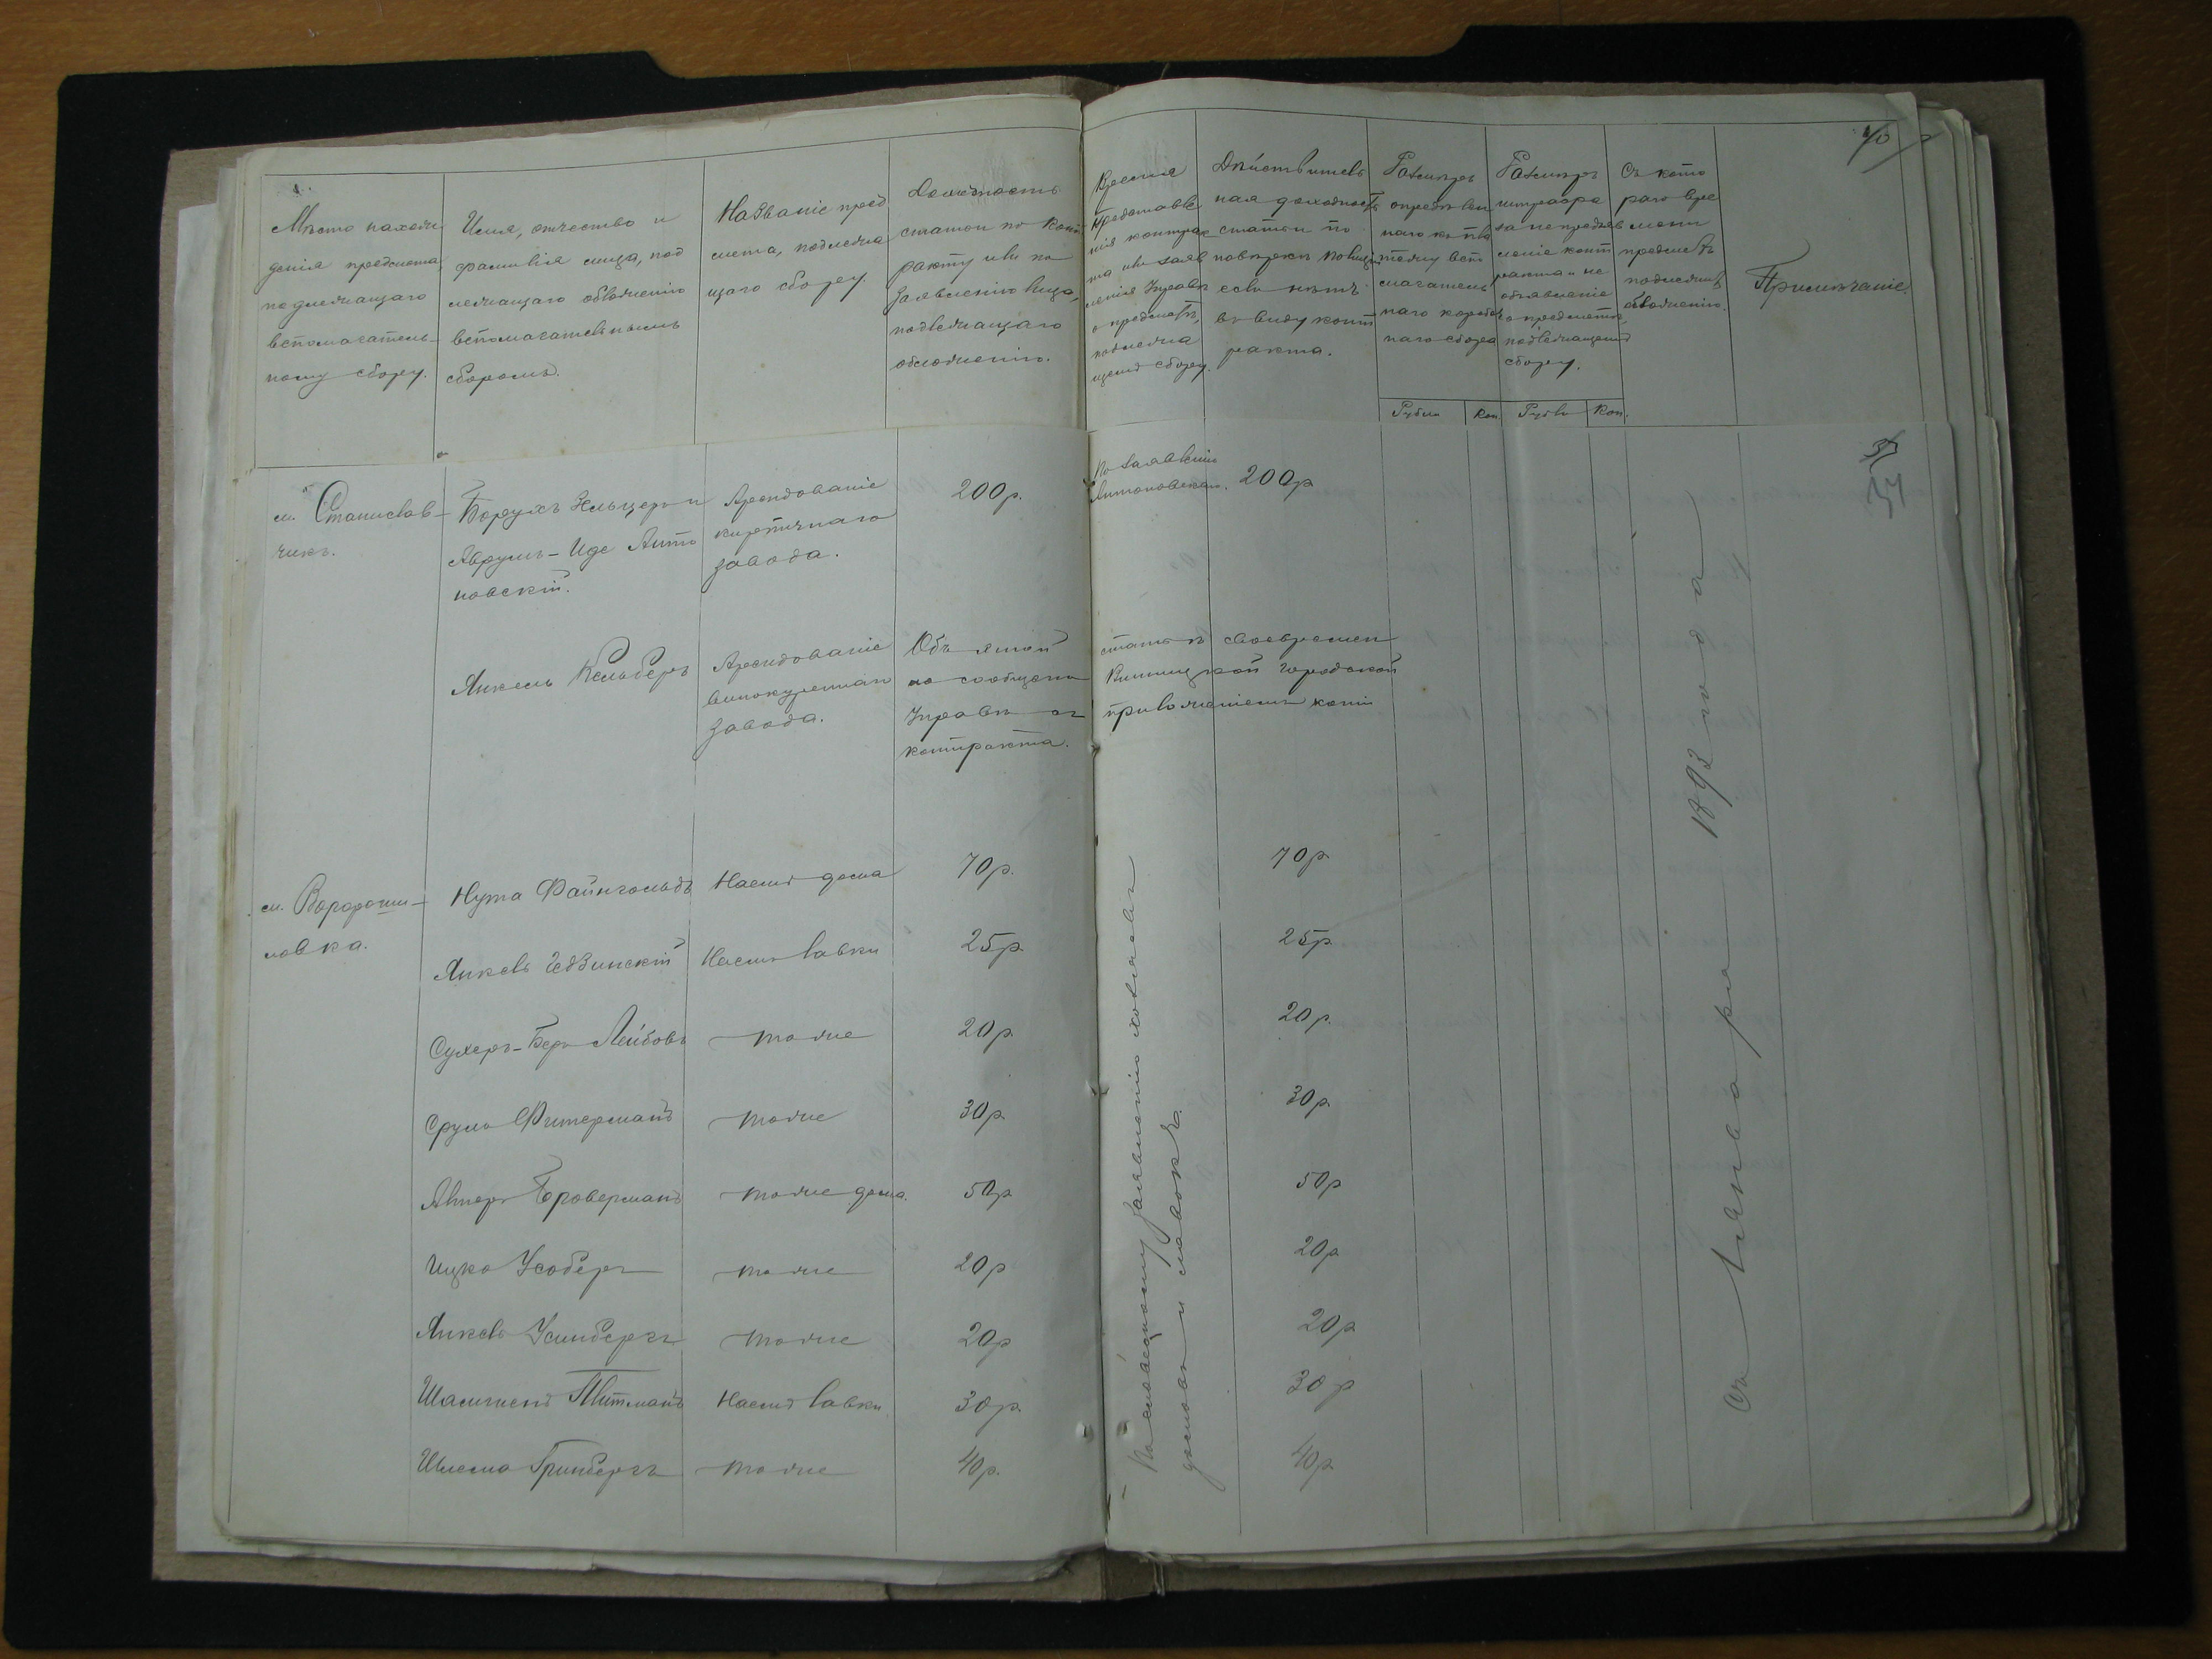 Мѣсто нахож
денія предмета,
подлежащаго
вспомогатель-
ному сбору.
Имя, отчество и
фамилія лица, под
лежащаго обложенію
вспомогательнымъ
сборомъ.
Названіе пред
мета, подлежа
щаго сбору.
Доходность
статьи по конт
ракту или по
заявленію лица,
подлежащаго
обложенію.
Время
представле
нія контрак
та или заяв
ленія Управѣ
о предметѣ,
подлежа
щемъ сбору.
Дѣйствитель
ная доходность
статьи по
повѣркѣ полиціи
если нѣтъ
въ виду конт
ракта.
Размѣръ
опредѣлен
наго къ пла
тежу вспо
могатель
наго коробоч
наго сбора
Размѣръ
штрафа
за непредъяв
леніе конт
ракта и не
объявленіе
о предметѣ,
подлежащемъ
сбору.
Съ кото
раго вре
мени
предметъ
подлежитъ
обложенію.
Примѣчаніе.
Рубли Коп. Рубли Коп.
м. Станислав-
чикъ.
Борухъ Зельцеръ и
Аврумъ-Иде Анто
новскій.
Арендованіе
кирпичнаго
завода.
200р.
По заявленію
Антоновскаго.
200р
Янкель Кельберъ
Арендованіе
винокуреннаго
завода.
Объ этой статьѣ своевремен
но сообщено Винницкой городской
Управѣ съ приложеніемъ копіи
контракта.
м. Ворошиловка.
Нута Файнгольдъ Наемъ дома 70р. 70р
Янкель Гедзинскій Наемъ лавки 25р. 25р.
Сухеръ-Беръ Лейбовъ тоже 20р. 20р.
Срулъ Фитерманъ тоже 30р. 30р.
Лейзеръ Броверманъ тоже дома. 50р. 50р
Ицко Усобергъ тоже 20р 20р
Янкель Усинбергъ тоже 20р 20р
Шамшенъ Питманъ Наемъ лавки 30р. 30р
Шлема Гринбергъ тоже 40р. 40р.
По словесному заявленію хозяевъ
домовъ и лавокъ.
Съ 1 января 1892 года